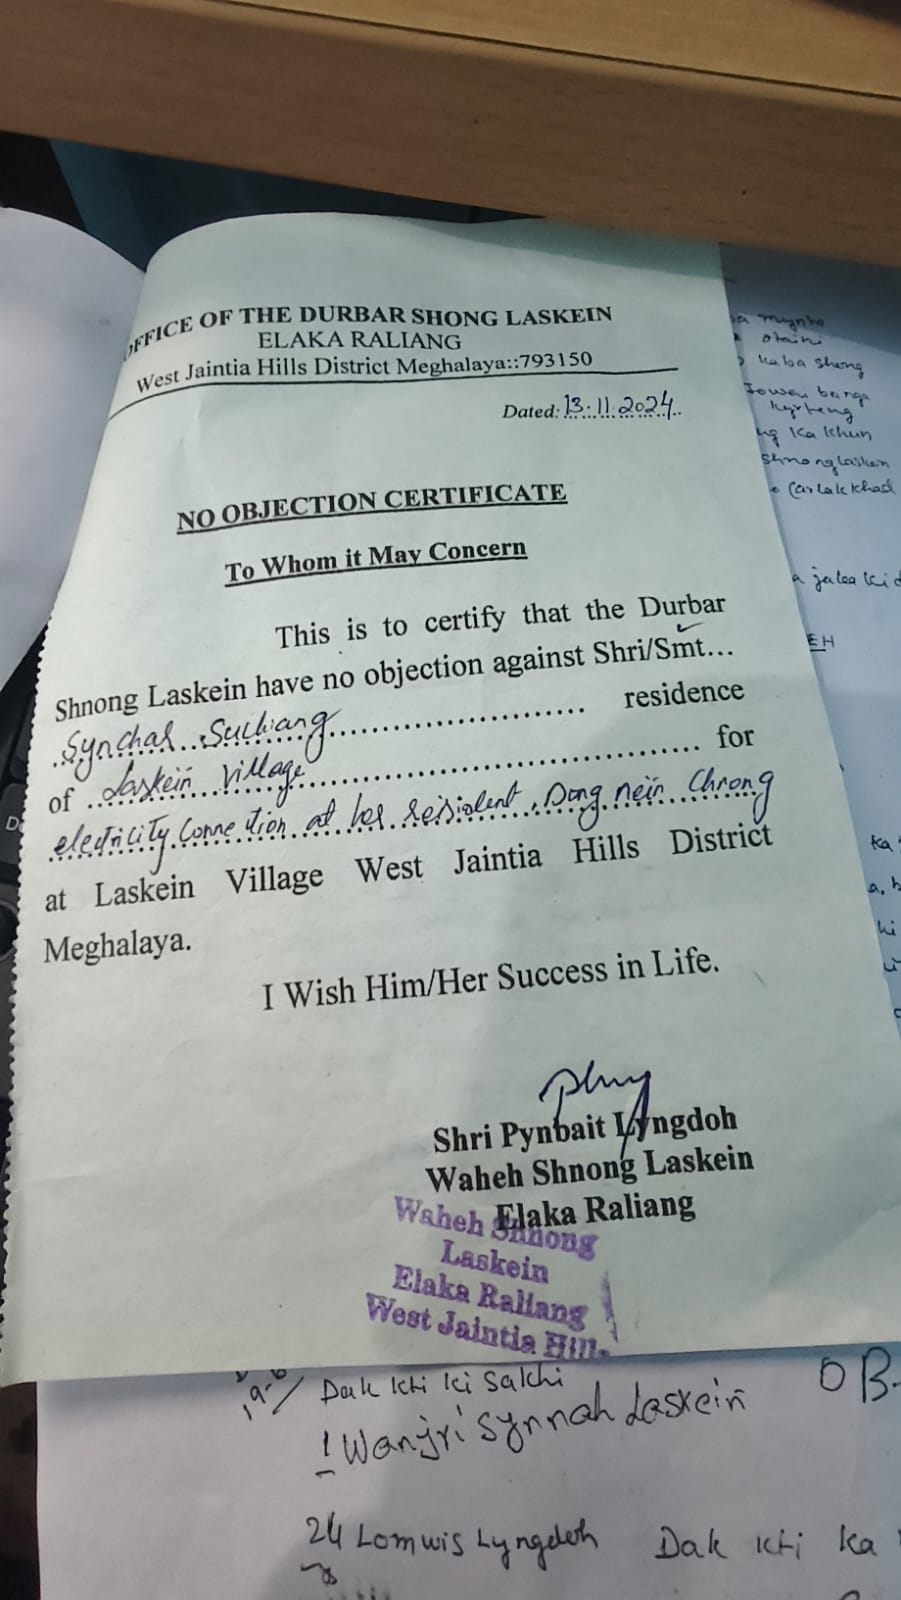 OFFICE OF THE DURBAR SHONG LASKEIN
ELAKA RALIANG
West Jaintia Hills District Meghalaya::793150
Dated: 13.11.2024
NO OBJECTION CERTIFICATE
To Whom it May Concern
This is to certify that the Durbar
Shnong Laskein have no objection against Shri/Smt...
Synchal Suchiang residence
of Laskein Village for
electricity Connection at her resident, Dong nein Chrong
at Laskein Village West Jaintia Hills District
Meghalaya.
I Wish Him/Her Success in Life.
Shri Pynbait Lyngdoh
Waheh Shnong Laskein
Elaka Raliang
Waheh Shnong
Laskein
Elaka Raliang
West Jaintia Hill
kaba shong
ka khun
shnong laskein
EH
Dak kti ki sakhi
1 Wanjri Synnah Laskein
24 Lomwis Lyngdoh Dak kti ka